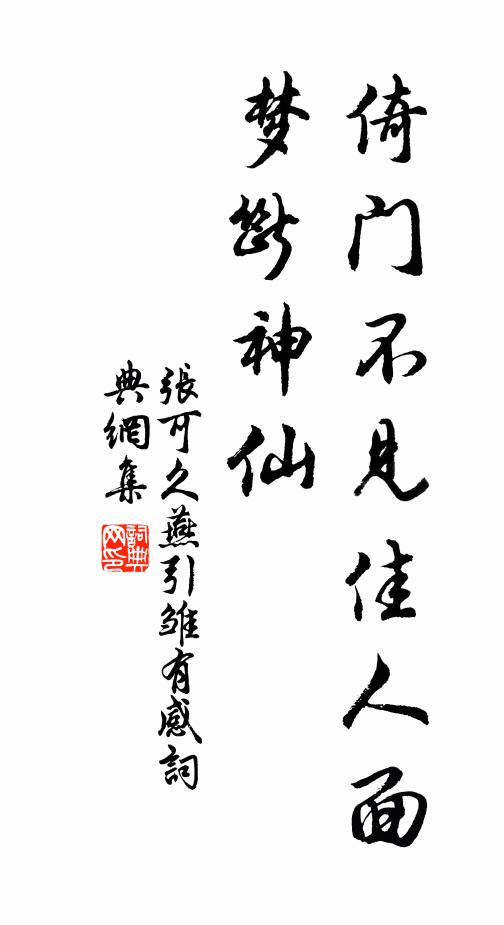 倚门不见佳人面
梦断神仙
張可久燕引雏有感詞
典網集
詞典网印